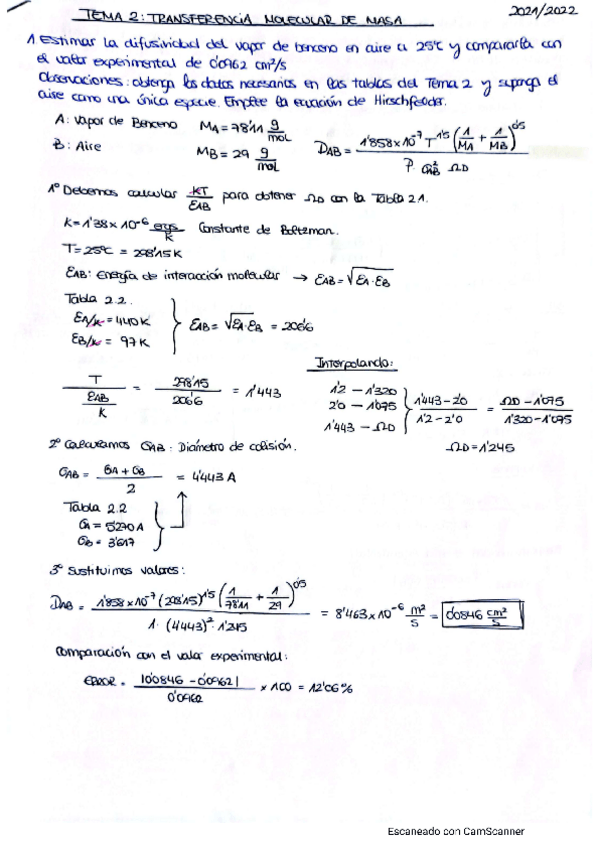 TEMA 2: TRANSFERENCIA MOLECULAR DE MASA
2021/2022
1. Estimar la difusividad del vapor de benceno en aire a 25ºC y compararla con
el valor experimental de 0'0962 cm²/s
Observaciones: obtenga los datos necesarios en las tablas del Tema 2 y suponga el
aire como una única especie. Emplee la ecuación de Hirschfelder.
A: Vapor de Benceno MA = 78'11 g/mol
B: Aire MB = 29 g/mol
DAB = 1'858x10⁻⁷ T^1'5 (1/MA + 1/MB)^0'5 / P · σAB² ΩD
1º Debemos calcular KT/EAB para obtener ΩD con la Tabla 2.1.
K = 1'38x10⁻⁶ ergs/K Constante de Boltzman.
T = 25ºC = 298'15 K
EAB: Energía de interacción molecular → EAB = √EA·EB
Tabla 2.2.
EA/K = 440 K
EB/K = 97 K
EAB = √EA·EB = 206'6
T / (EAB/K) = 298'15 / 206'6 = 1'443
Interpolando:
1'2 – 1'320
2'0 – 1'075
1'443 – ΩD
(1'443 – 2'0) / (1'2 – 2'0) = (ΩD – 1'075) / (1'320 – 1'075)
ΩD = 1'245
2º Calculamos σAB: Diámetro de colisión.
σAB = (σA + σB) / 2 = 4'443 A
Tabla 2.2
σA = 5'270 A
σB = 3'617
3º Sustituimos valores:
DAB = 1'858x10⁻⁷ (298'15)^1'5 (1/78'11 + 1/29)^0'5 / 1 · (4'443)² · 1'245 = 8'463x10⁻⁶ m²/s = 0'0846 cm²/s
Comparación con el valor experimental:
ERROR = |0'0846 – 0'0962| / 0'0962 x 100 = 12'06 %
Escaneado con CamScanner